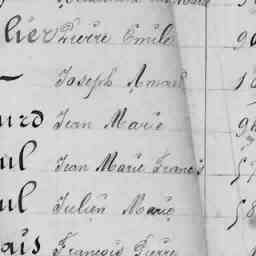 lier Pierre Emile 90
Joseph Amand
urd Jean Marie
ul Jean Marie Francis
ul Julien Marie 58
ais François Pierre